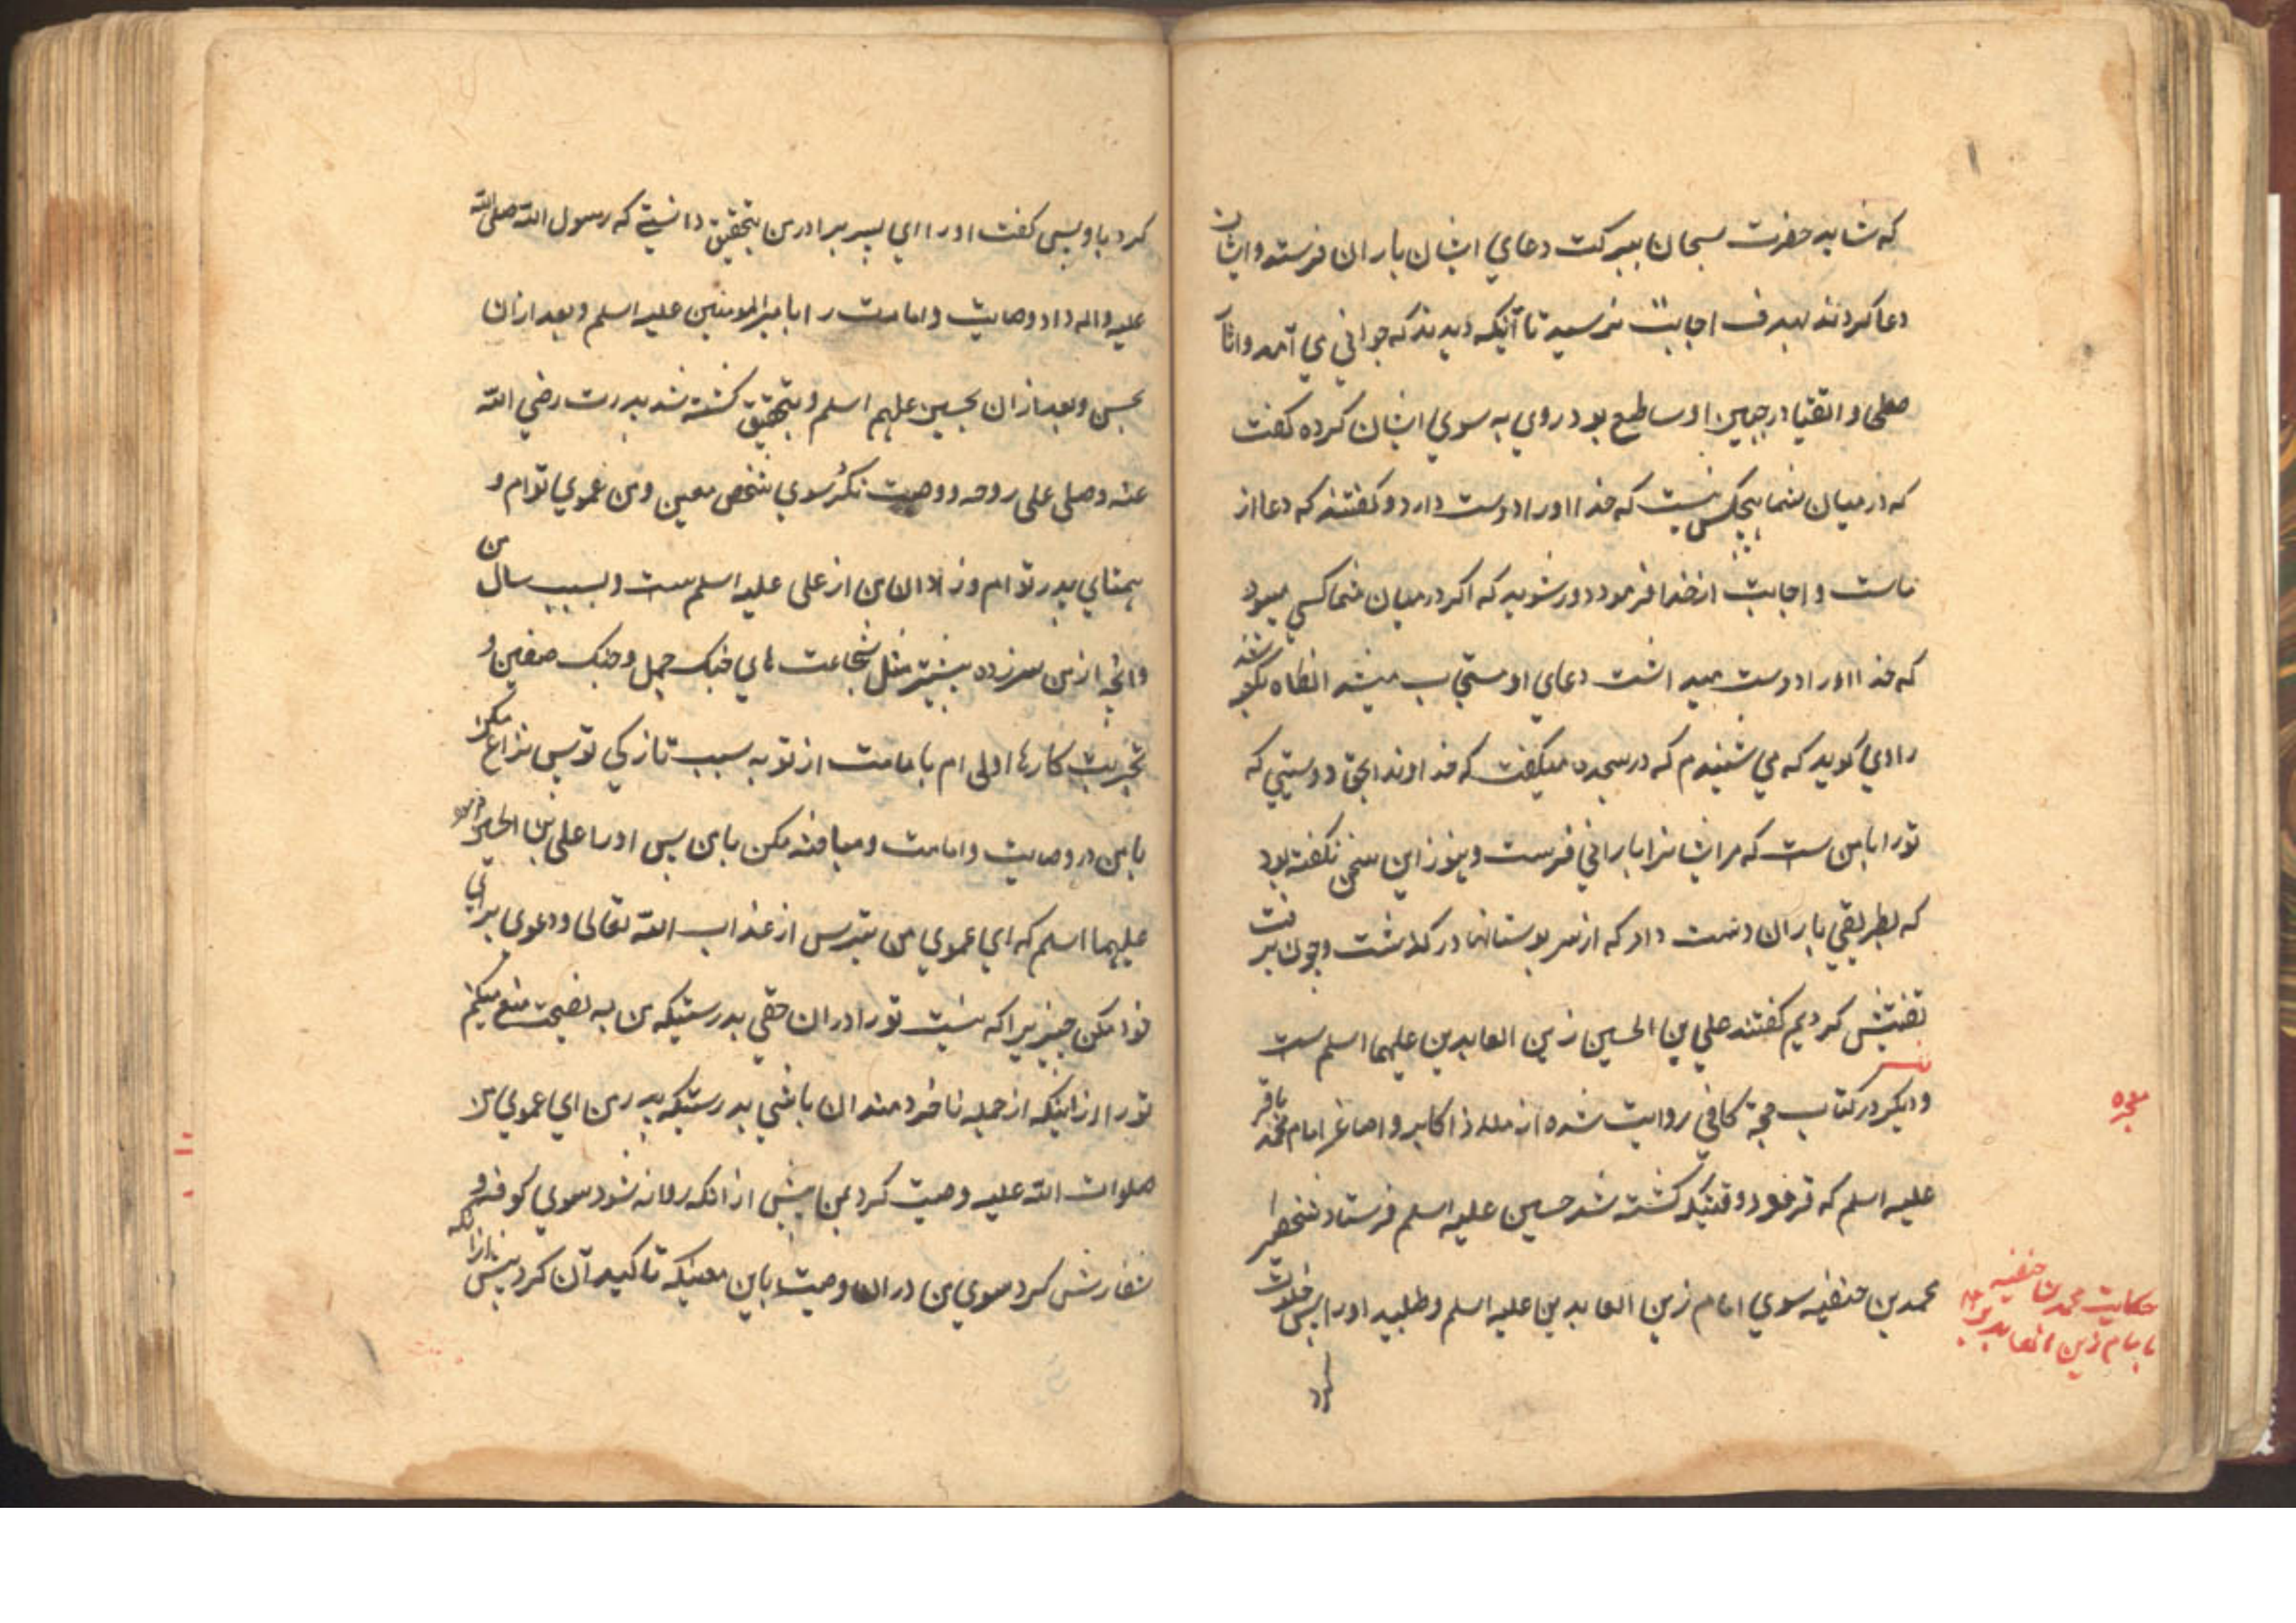 که شاید حضرت سبحان ببرکت دعای ایشان باران فرستد و ایشان
دعا کردند بهدف اجابت نرسید تا آنکه دیدند که جوانی می آمد و اثار
صلحا و اتقیا در جبین او ساطع بود روی به سوی ایشان کرده گفت
که در میان شما هیچکس نیست که خدا او را دوست دارد و گفتند که دعا از
ماست و اجابت از خدا فرمود دور شوید که اگر در میان شما کسی میبود
که خدا او را دوست میداشت دعای او مستجاب میشد انگاه بکعبه شد
راوی گوید که می شنیدم که در سجده میگفت که خداوندا بحق دوستیی که
تو را با من ست که مر ایشانرا بارانی فرست و هنوز این سخن نگفته بود
که بطریقی باران دست داد که از سر بوستانها در گذشت و چون برفت
تفتیش کردیم گفتند علی بن الحسین زین العابدین علیهما اسلم ست
و دیگر در کتاب حجة کافی روایت شده از ملاذ اکابر و اصاغر امام محمد باقر
علیه اسلم که فرمود وقتیکه کشته شد حسین علیه اسلم فرستاد شخصی را
محمد بن حنفیه سوی امام زین العابدین علیه اسلم و طلبید او را پس خلوت
کرد
معجزه
حکایت محمد حنفیه
با امام زین العابدین
کرد با وپس گفت او را ای پسر برادر من بتحقیق دانستی که رسول الله صلی الله
علیه واله داد وصایت و امامت را بامیر المومنین علیه اسلم و بعد ازان
بحسن و بعد ازان بحسین علیهم اسلم و بتحقیق کشته شد پدرت رضی الله
عنه وصلی علی روحه و وصیت نکرد سوی شخص معین و من عموی توام و
همتای پدر توام و زادان من از علی علیه اسلم ست و بسبب سال من
وانچه از من سرزده بیشتر مثل شجاعت های جنک جمل و جنک صفین و
تجربت کارها اولی ام بامامت از تو به سبب تازگی تو پس نزاع مکن
با من در وصایت و امامت و مباحثه مکن با من پس او را علی بن الحسین فرمود
علیهما اسلم که ای عموی من بترس از عذاب الله تعالی و دعوی برای
خود مکن چیزیرا که نیست تو را دران حقی بدرستیکه من به نصیحت منع میکنم
تو را از اینکه از جمله ناخردمندان باشی بدرستیکه پدر من ای عموی من
صلوات الله علیه وصیت کرد بمن پیش از انکه روانه شود سوی کوفه و
سفارش کرد سوی من دران وصیت باین معنیکه تاکید آن کرد پیش از انکه